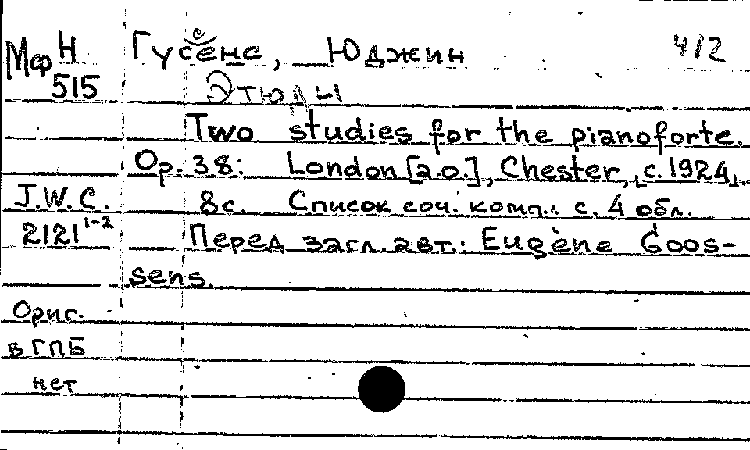 Мф Н Гусенс, Юджин 4/2
515 Этюды
Two studies for the pianoforte.
Op. 38: London [a.o.], Chester, [c. 1924].
J.W.C. 8с. Список соч. комп.: с. 4 обл.
2121 1-2 Перед загл. авт.: Eugène Goos-
sens.
Ориг.
в ГПБ
нет